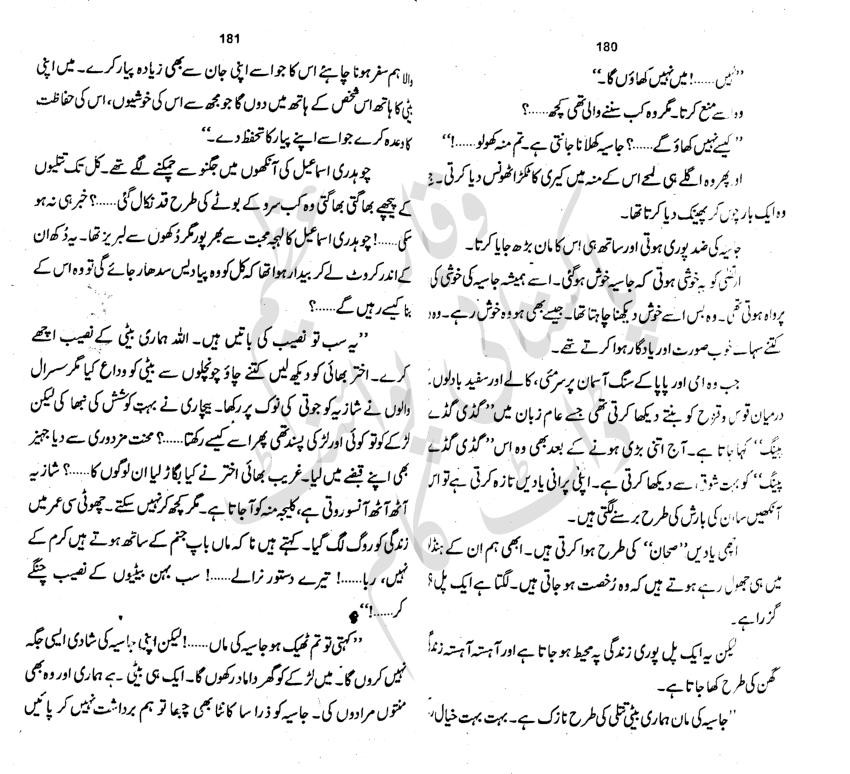 180
”نہیں......! میں نہیں کھاؤں گا۔“
وہ اسے منع کرتا۔ مگر وہ کب سننے والی تھی کچھ......؟
”کیسے نہیں کھاؤ گے......؟ جاسیہ کھلانا جانتی ہے۔ تم منہ کھولو......!“
اور پھر وہ اگلے ہی لمحے اس کے منہ میں کیری کا ٹکڑا ٹھونس دیا کرتی۔
وہ ایک بار چوس کر پھینک دیا کرتا تھا۔
جاسیہ کی ضد پوری ہوتی اور ساتھ ہی اس کا مان بڑھ جایا کرتا۔
ارتضیٰ کو یہ خوشی ہوتی کہ جاسیہ خوش ہو گئی۔ اسے ہمیشہ جاسیہ کی خوشی کی
پرواہ ہوتی تھی۔ وہ بس اسے خوش دیکھنا چاہتا تھا۔ جیسے بھی ہو وہ خوش رہے۔ وہ
کتنے سہانے خوب صورت اور یادگار ہوا کرتے تھے۔
جب وہ امی اور پاپا کے سنگ آسمان پر سرمئی، کالے اور سفید بادلوں
درمیان قوس و قزح کو بنتے دیکھا کرتی تھی جسے عام زبان میں ”گڈی گڈے
پینگ“ کہا جاتا ہے۔ آج اتنی بڑی ہونے کے بعد بھی وہ اس ”گڈی گڈے
پینگ“ کو بہت شوق سے دیکھا کرتی ہے۔ اپنی پرانی یادیں تازہ کرتی ہے تو اس
آنکھیں ساون کی بارش کی طرح برسنے لگتی ہیں۔
اچھی یادیں ”صحان“ کی طرح ہوا کرتی ہیں۔ ابھی ہم ان کے
میں ہی جھول رہے ہوتے ہیں کہ وہ رُخصت ہو جاتی ہیں۔ لگتا ہے ایک پل
گزرا ہے۔
لیکن یہ ایک پل پوری زندگی پہ محیط ہو جاتا ہے اور آہستہ آہستہ
گھن کی طرح کھا جاتا ہے۔
”جاسیہ کی ماں ہماری بیٹی تتلی کی طرح نازک ہے۔ بہت بہت خیال
181
والا ہم سفر ہونا چاہئے اس کا جو اسے اپنی جان سے بھی زیادہ پیار کرے۔ میں اپنی
بیٹی کا ہاتھ اس شخص کے ہاتھ میں دوں گا جو مجھ سے اس کی خوشیوں، اس کی حفاظت
کا وعدہ کرے جو اسے اپنے پیار کا تحفظ دے۔“
چوہدری اسماعیل کی آنکھوں میں جگنو سے چمکنے لگے تھے۔ کل تک تتلیوں
کے پیچھے بھاگتی بھاگتی وہ کب سرو کے بوٹے کی طرح قد نکال گئی......؟ خبر ہی نہ ہو
سکی......! چوہدری اسماعیل کا لہجہ محبت سے بھر پور مگر دُکھوں سے لبریز تھا۔ یہ دُکھ ان
کے اندر کروٹ لے کر بیدار ہوا تھا کہ کل کو وہ پیا دیس سدھار جائے گی تو وہ اس کے
بنا کیسے رہیں گے......؟
”یہ سب تو نصیب کی باتیں ہیں۔ اللہ ہماری بیٹی کے نصیب اچھے
کرے۔ اختر بھائی کو دیکھ لیں کتنے چاؤ چونچلوں سے بیٹی کو وداع کیا مگر سسرال
والوں نے شازیہ کو جوتی کی نوک پر رکھا۔ بیچاری نے بہت کوشش کی نبھا کی لیکن
لڑکے کو تو کوئی اور لڑکی پسند تھی پھر اسے کیسے رکھتا......؟ محنت مزدوری سے دیا جہیز
بھی اپنے قبضے میں لیا۔ غریب بھائی اختر نے کیا بگاڑ لیا ان لوگوں کا......؟ شازیہ
آٹھ آٹھ آنسو روتی ہے، کلیجہ منہ کو آ جاتا ہے۔ مگر کچھ کر نہیں سکتے۔ چھوٹی سی عمر میں
زندگی کو روگ لگ گیا۔ کہتے ہیں نا کہ ماں باپ جنم کے ساتھ ہوتے ہیں کرم کے
نہیں، ربا......! تیرے دستور نرالے......! سب بہن بیٹیوں کے نصیب چنگے
کر......!“
”کہتی تو تم ٹھیک ہو جاسیہ کی ماں......! لیکن اپنی جاسیہ کی شادی ایسی جگہ
نہیں کروں گا۔ میں لڑکے کو گھر داماد رکھوں گا۔ ایک ہی بیٹی ہے ہماری اور وہ بھی
منتوں مرادوں کی۔ جاسیہ کو ذرا سا کانٹا بھی چبھا تو ہم برداشت نہیں کر پائیں